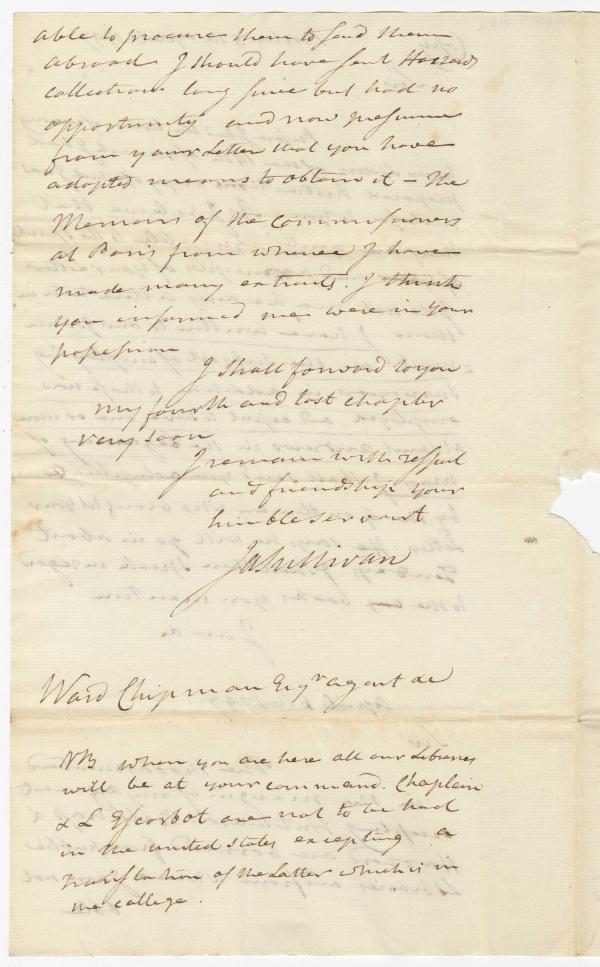 able to procure them to send them
abroad I should have sent Hazzards
collections long since but had no
opportunity and now presume
from your Letter that you have
adopted means to obtain it — The
Memoirs of the Commissioners
at Paris from whence I have
made many extracts. I think
you informed me were in your
possession
I shall forward to you
my fourth and last chapter
very soon
I remain with respect
and friendship your
humble servant
Ja Sullivan
Ward Chipman Esqr agent &c
NB when you are here all our Libraries
will be at your command. Chaplain
& L Escarbot are not to be had
in the united states excepting a
translation of the Latter which is in
the college.